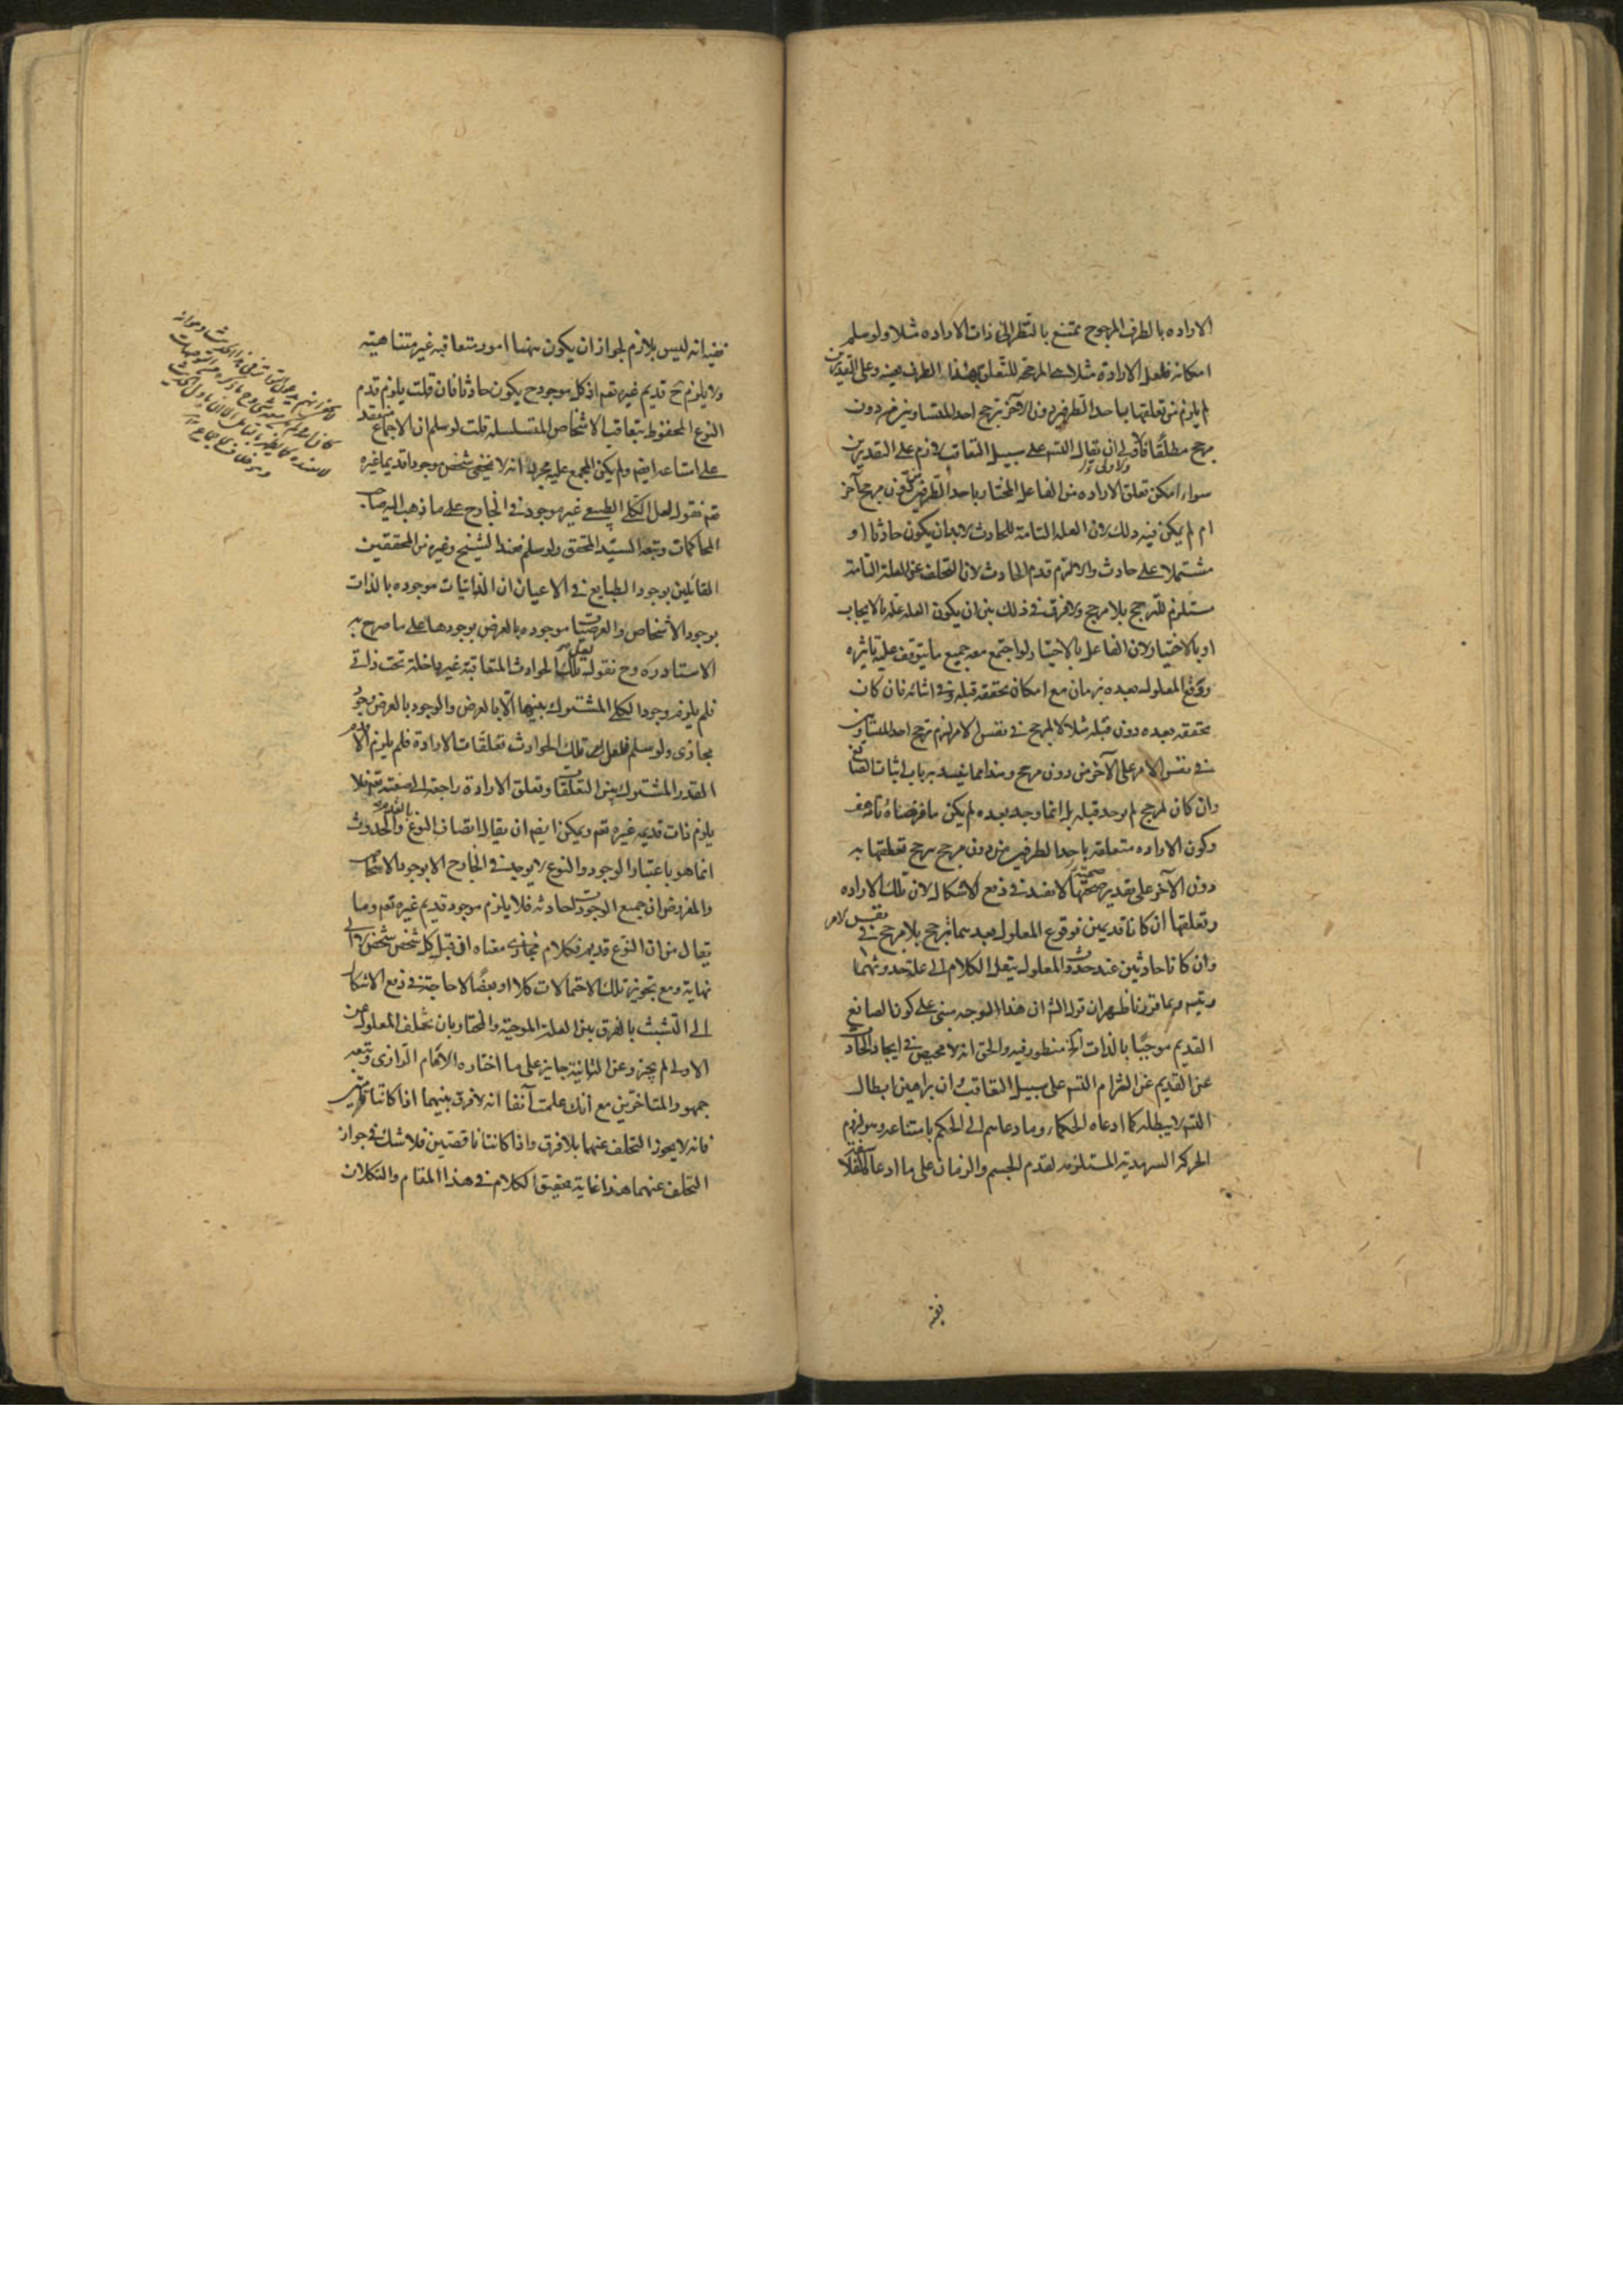 الاراده بالطرف المرجوح ممتنع بالنظر الى ذات الاراده مثلا ولو سلم
امكانه فلعل الارادة مثلا هى المرجحة للتعلق بهذا الطرف بعينه وعلى التقديرين
لم يلزم من تعلقها باحد الطرفين دون الآخر ترجح احد المتساويين من دون
مرجح مطلقا فالاولى ان يقال التس على سبيل التعاقب لازم على التقديرين
سواء امكن تعلق الاراده من الفاعل المختار باحد الطرفين من دون مرجح آخر
ام لم يكن فيه ذلك لان العلة التامة للحادث لابد ان يكون حادثا او
مشتملا على حادث والا لزم قدم الحادث لان التخلف عن العلة التامة
مستلزم للترجح بلا مرجح ولا فرق فى ذلك بين ان يكون العلة علة بالايجاب
او بالاختيار لان الفاعل بالاختيار لو اجتمع معه جميع ما يتوقف عليه تاثيره
ووقع المعلول بعده بزمان مع امكان تحققه قبله وفى اثنائه فان كان
تحققه بعده دون قبله مثلا لا لمرجح فى نفس الامر لزم ترجح احد المتساويين
فى نفس الامر على الآخر من دون مرجح وهذا مما ينسد به باب اثبات الصانع
وان كان لمرجح لم يوجد قبله بل انما وجد بعده لم يكن ما فرضناه تاما هف
وكون الاراده متعلقة باحد الطرفين من دون مرجح يرجح تعلقها به
دون الآخر على تقدير صحتها لا يفيد فى دفع الاشكال لان تلك الاراده
وتعلقها ان كانا قديمين فوقوع المعلول بعدهما ترجح بلا مرجح فى نفس الامر
وان كانا حادثين عند حدوث المعلول ينقل الكلام الى علة حدوثهما
ويتس وبما قررنا ظهر ان قول الش ان هذا الوجه مبنى على كون الصانع
القديم موجبا بالذات الخ منظور فيه والحق انه لا محيص فى ايجاد الحادث
عن القديم عن التزام التس على سبيل التعاقب ان براهين ابطال
التس لا يبطله كما ادعاه الحكماء وما دعاهم الى الحكم بامتناعه وهو لزوم
الحركة السرمدية المستلزمة لقدم الجسم والزمان على ما ادعاه الفلاسفة
ففيه
ففيه انه ليس بلازم لجواز ان يكون هنا امور متعاقبة غير متناهية
ولا يلزم ح قديم غيره تع اذ كل موجود ح يكون حادثا فان قلت يلزم قدم
النوع المحفوظ بتعاقب الاشخاص المتسلسلة قلت لو سلم ان الاجماع منعقد
على امتناعه ايض ولم يكن المجمع عليه مجرد انه لا يخفى شخص موجود قديما غيره
تع فنقول لعل الكلى الطبيعى غير موجود فى الخارج على ما ذهب اليه صاحب
المحاكمات وتبعه السيد المحقق ولو سلم فعند الشيخ وغيره من المحققين
القائلين بوجود الطبايع فى الاعيان ان الذاتيات موجوده بالذات
بوجود الاشخاص والعرضيات موجوده بالعرض بوجودها على ما صرح به
الاستاد ره وح نقول لعل تلك الحوادث المتعاقبة غير داخلة تحت ذاتى
فلم يلزم وجود الكلى المشترك بينها الا بالعرض والوجود بالعرض وجود
مجازى ولو سلم فلعل تلك الحوادث تعلقات الارادة فلم يلزم الا قدم
القدر المشترك بين التعلقات وتعلق الارادة راجعة الى صفته تع فلا
يلزم ذات قديمه غيره تع ويمكن ايض ان يقال اتصاف النوع بالقدم والحدوث
انما هو باعتبار الوجود والنوع لا يوجد فى الخارج الا بوجود الاشخاص
والمفروض ان جميع الوجودات حادثه فلا يلزم موجود قديم غيره تع وما
يقال من ان النوع قديم فكلام مجازى معناه ان قبل كل شخص شخص لا الى
نهاية ومع تجويز تلك الاحتمالات كلا او بعضا لا حاجة فى دفع الاشكال
الى التشبث بالفرق بين العلة الموجبة والمختار بان تخلف المعلول عن
الاولى لم يجز وعن الثانية جايز على ما اختاره الامام الرازى وتبعه
جمهور المتاخرين مع انك علمت آنفا انه لا فرق بينهما اذا كانتا تامتين
فانه لا يجوز التخلف عنهما بلا فرق واذا كانتا ناقصتين فلا شك فى جواز
التخلف عنهما هذا غاية تحقيق الكلام فى هذا المقام والتكلان